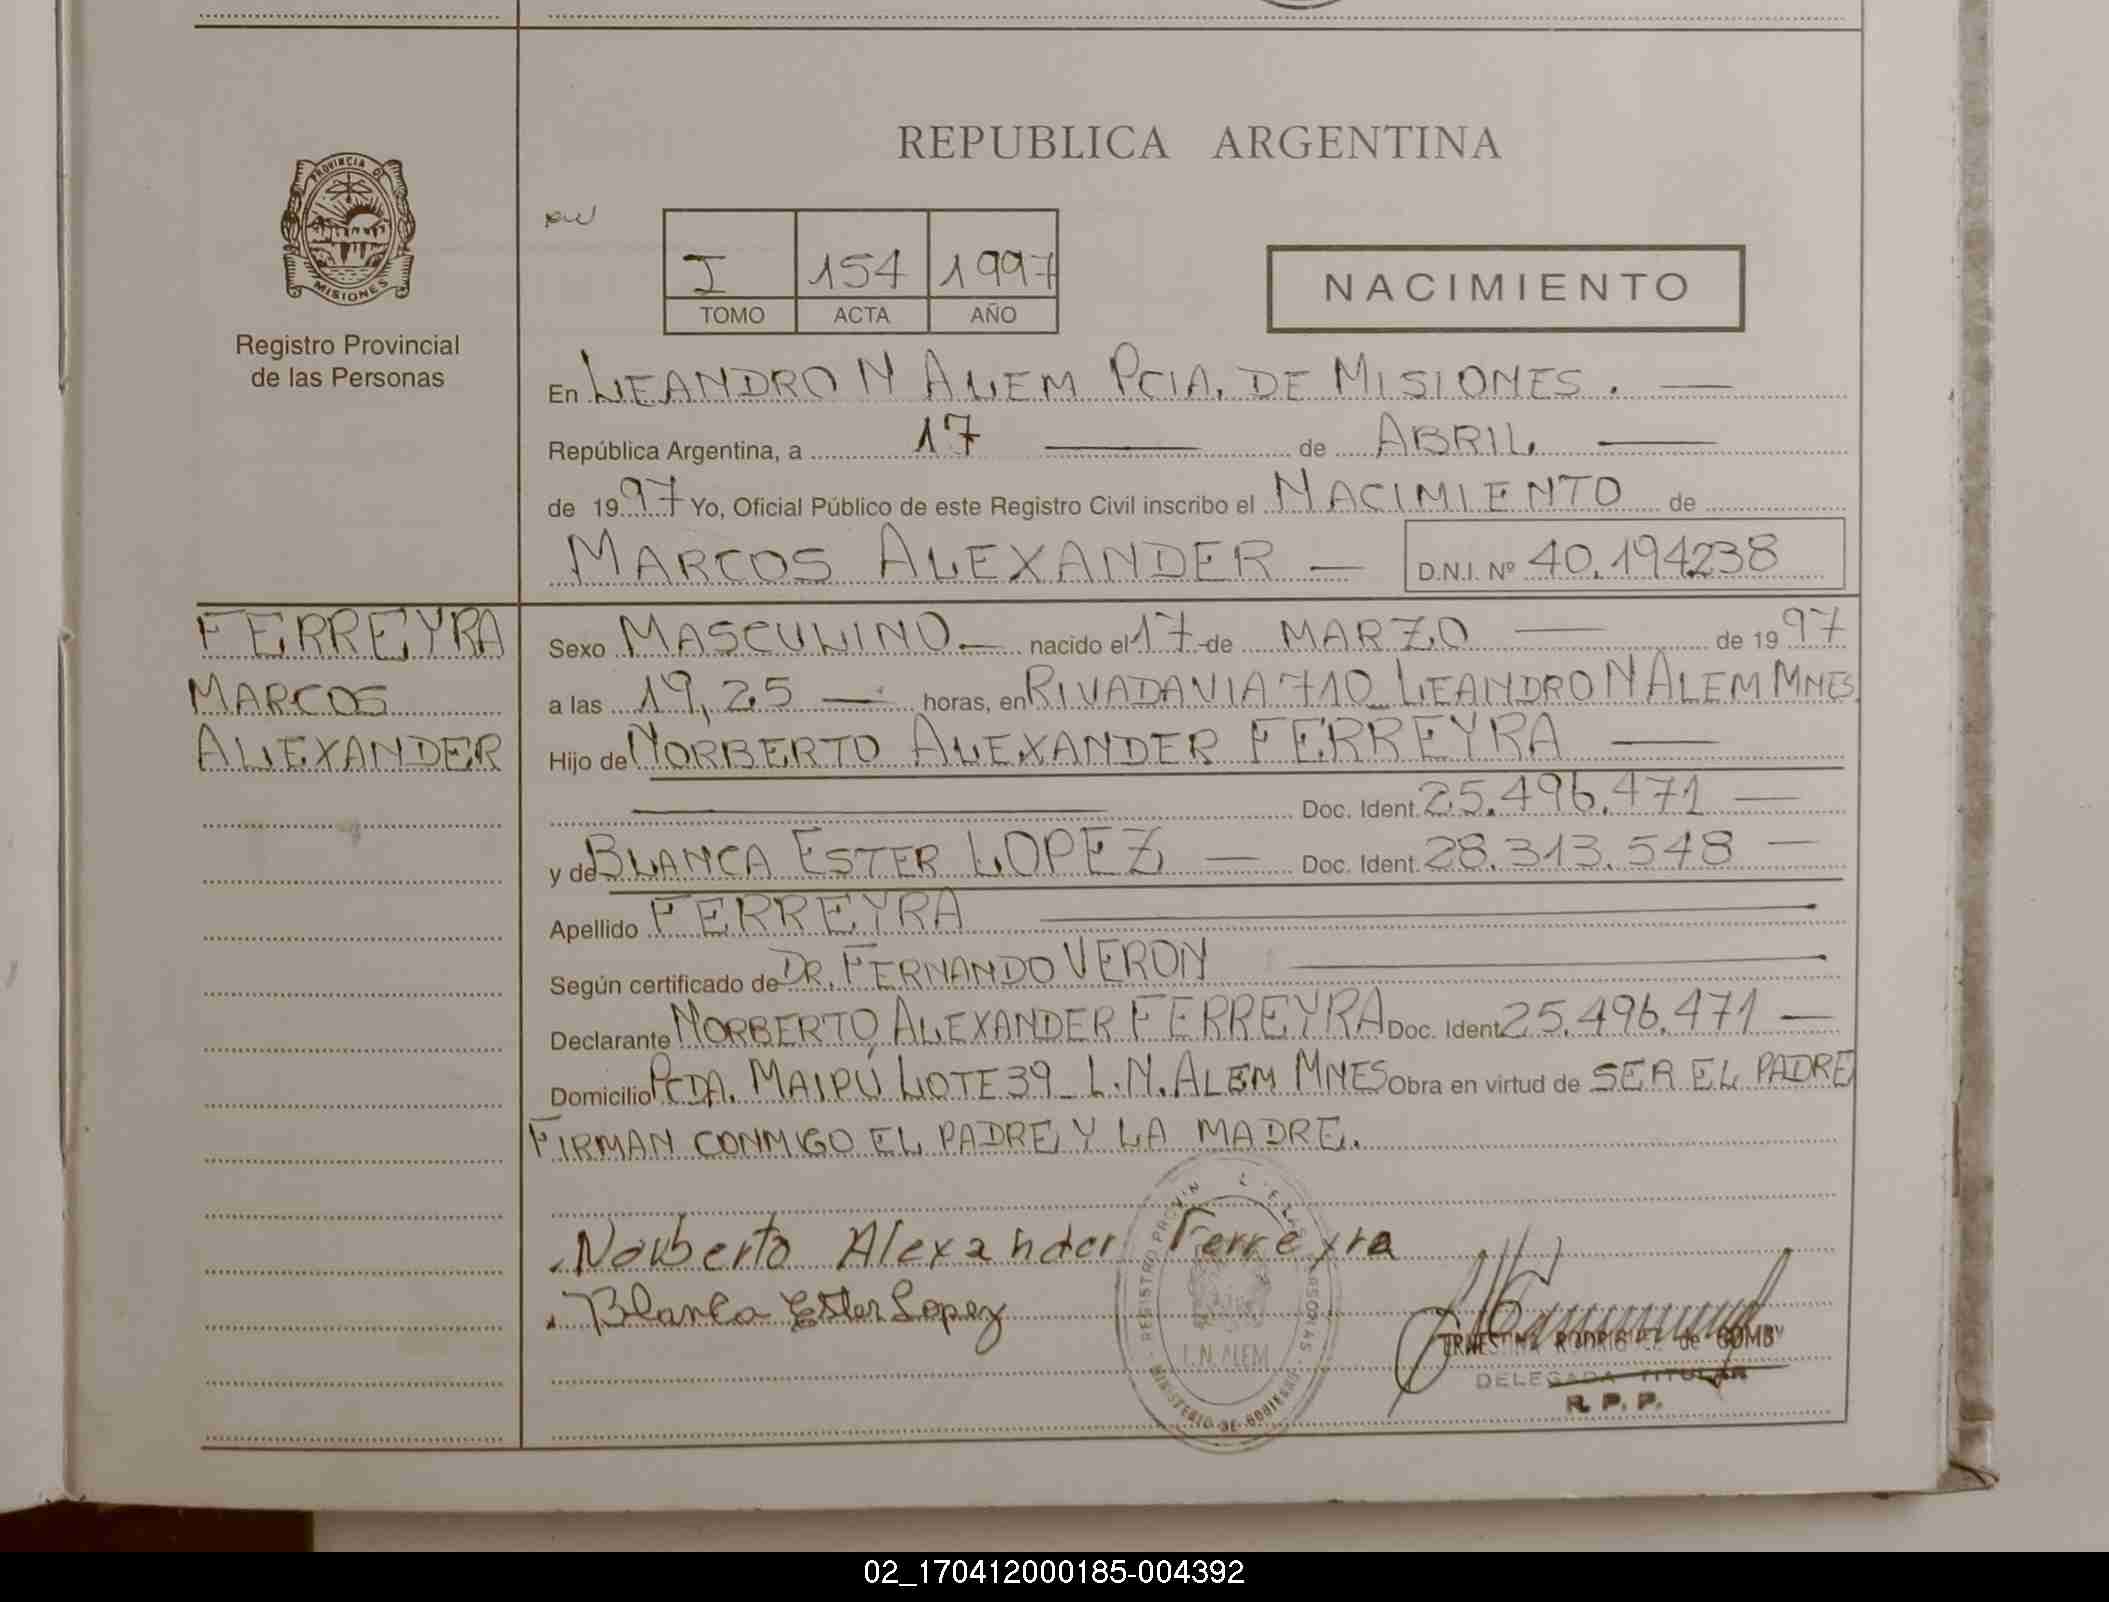 REPUBLICA ARGENTINA
PROVINCIA DE
MISIONES
Registro Provincial
de las Personas
I 154 1997
TOMO ACTA AÑO
NACIMIENTO
En LEANDRO N ALEM PCIA. DE MISIONES. —
República Argentina, a 17 — de ABRIL —
de 1997 Yo, Oficial Público de este Registro Civil inscribo el NACIMIENTO de
MARCOS ALEXANDER — D.N.I. Nº 40.194238
FERREYRA
MARCOS
ALEXANDER
Sexo MASCULINO — nacido el 17 de MARZO — de 1997
a las 19,25 — horas, en RIVADAVIA 710_LEANDRO N ALEM MNES
Hijo de NORBERTO ALEXANDER FERREYRA —
Doc. Ident. 25.496.471 —
y de BLANCA ESTER LOPEZ — Doc. Ident. 28.313.548 —
Apellido FERREYRA
Según certificado de DR. FERNANDO VERON
Declarante NORBERTO ALEXANDER FERREYRA Doc. Ident 25.496.471 —
Domicilio PCDA. MAIPÚ LOTE 39_L.N.ALEM MNES Obra en virtud de SER EL PADRE
FIRMAN CONMIGO EL PADRE Y LA MADRE.
Norberto Alexander Ferreyra
Blanca Ester Lopez
REGISTRO
L.N.ALEM
MINISTERIO DE GOBIERNO
ERNESTINA de
DELEGADA TITULAR
R. P. P.
02_170412000185-004392